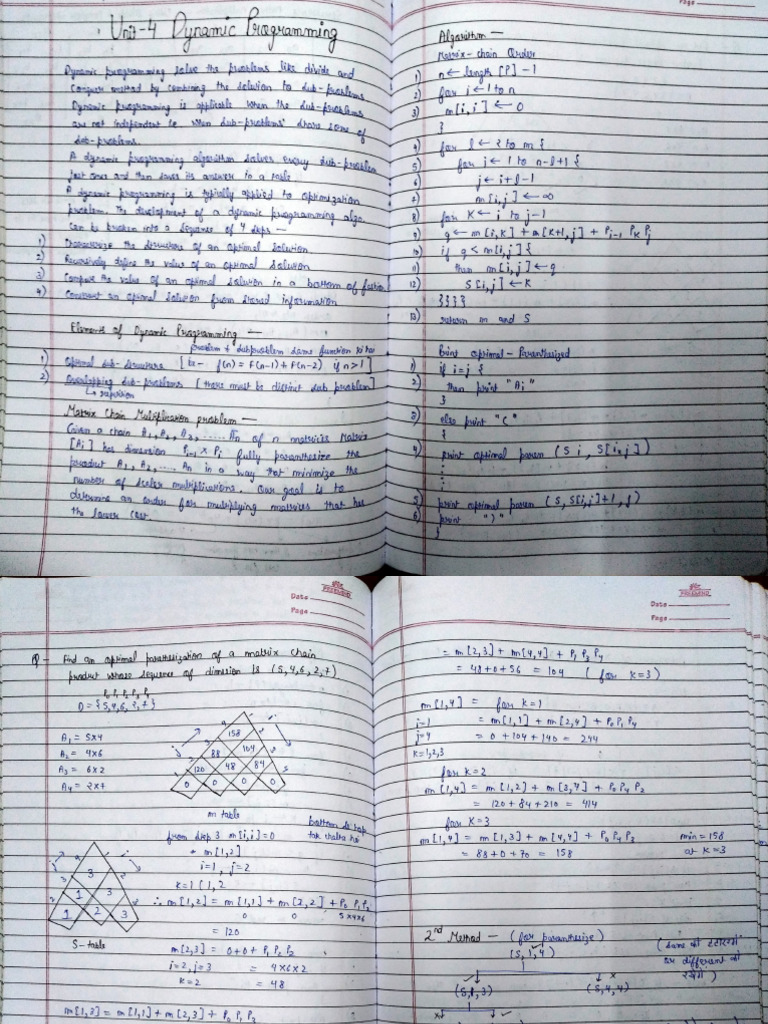 Unit-4 Dynamic Programming
Dynamic programming solve the problems like divide and
conquer method by combining the solution to sub-problems
Dynamic programming is applicable when the sub-problems
are not independent ie when sub-problems share some of
sub-problems.
A dynamic programming algorithm solves every sub-problem
just once and then saves its answer in a table
A dynamic programming is typically applied to optimization
problem. The development of a dynamic programming algo.
can be broken into a sequence of 4 steps —
1) Characterize the structure of an optimal solution
2) Recursively define the value of an optimal solution
3) Compute the value of an optimal solution in a bottom up fashion
4) Construct an optimal solution from stored information
Elements of Dynamic Programming —
problem & subproblem same function
1) Optimal sub-structure [ f(n) = F(n-1) + F(n-2) if n>1 ]
2) Overlapping sub-problems [ there must be distinct sub problem ]
Matrix Chain Multiplication problem —
Given a chain A1, A2, A3, ..... An of n matrices Matrix
[Ai] has dimension Pi-1 x Pi fully paranthesize the
product A1, A2, .... An in a way that minimize the
number of scaler multiplications. Our goal is to
determine an order for multiplying matrices that has
the lower cost.
Page
Algorithm —
Matrix-chain Order
1) n ← length [P] - 1
2) for i ← 1 to n
3) m[i,i] ← 0
}
4) for l ← 2 to n {
5) for i ← 1 to n-l+1 {
6) j ← i+l-1
7) m[i,j] ← ∞
8) for K ← i to j-1
9) q ← m[i,K] + m[K+1,j] + Pi-1 PK Pj
10) if q < m[i,j] {
11) then m[i,j] ← q
12) S[i,j] ← K
}}}}
13) return m and S
Print optimal-Paranthesized
1) if i=j {
2) then print "Ai"
}
3) else print "("
{
4) print optimal paren (S i, S[i,j])
5) print optimal paren (S, S[i,j]+1, j)
6) print ")"
}
Date
Page
Q- Find an optimal paranthesization of a matrix chain
product whose sequence of dimesion is (5,4,6,2,7)
P0 P1 P2 P3 P4
D = {5,4,6,2,7}
A1 = 5x4
A2 = 4x6
A3 = 6x2
A4 = 2x7
158
88 104
120 48 84
0 0 0 0
m table
bottom to top
from step 3 m[i,i]=0
* m[1,2]
i=1, j=2
K=1
∴ m[1,2] = m[1,1] + m[2,2] + P0 P1 P2
0 0 5x4x6
= 120
3
1 3
1 2 3
S-table
m[2,3] = 0+0+ P1 P2 P3
i=2, j=3 = 4x6x2
K=2 = 48
m[1,3] = m[1,1] + m[2,3] + P0 P1 P3
Date
Page
= m[2,3] + m[4,4] + P1 P3 P4
= 48+0+56 = 104 ( for K=3)
m[1,4] = for K=1
i=1 = m[1,1] + m[2,4] + P0 P1 P4
j=4 = 0 + 104 + 140 = 244
K=1,2,3
for K=2
m[1,4] = m[1,2] + m[3,4] + P0 P4 P2
= 120+84+210 = 414
for K=3
m[1,4] = m[1,3] + m[4,4] + P0 P4 P3 min=158
= 88+0+70 = 158 at K=3
2nd Method — (for paranthesize)
(S,1,4)
(S,1,3) (S,4,4)